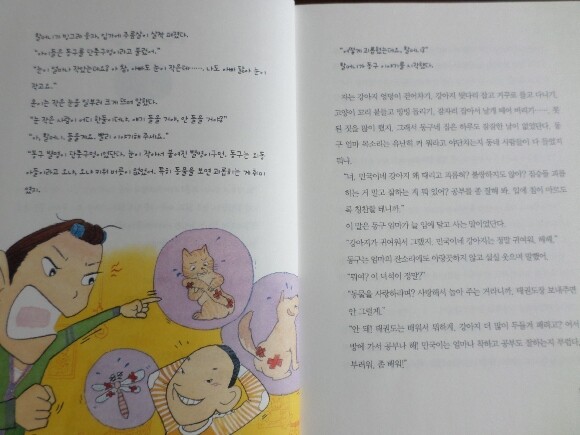 할머니가 빙그레 웃자, 입가에 주름살이 살짝 패였다.
"아이들은 동구를 단춧구멍이라고 불렀어."
"눈이 얼마나 작았는데요? 아 참, 아빠도 눈이 작은데……, 나도 아빠 닮아 눈이
작고요."
은이는 작은 눈을 일부러 크게 뜨며 말했다.
"눈 작은 사람이 어디 한둘이더냐. 얘기 들을 거야, 안 들을 거야?"
"아, 할머니, 들을게요. 빨리 이야기해 주세요."
"동구 별명이 단춧구멍이었단다. 눈이 작아서 붙여진 별명이구먼. 동구는 외동
아들이라고 오냐, 오냐 키워 버릇이 없었어. 특히 동물을 보면 괴롭히는 게 취미
였지.
"어떻게 괴롭혔는데요, 할머니?"
할머니가 동구 이야기를 시작했다.
자는 강아지 엉덩이 걷어차기, 강아지 뒷다리 잡고 거꾸로 들고 다니기,
고양이 꼬리 붙들고 빙빙 돌리기, 잠자리 잡아서 날개 떼어 버리기……. 못
된 짓을 많이 했지. 그래서 동구네 집은 하루도 잠잠한 날이 없었단다. 동
구 엄마 목소리는 유난히 커 뭐라고 야단치는지 동네 사람들이 다 들었지
뭐냐.
"너, 민국이네 강아지 왜 때리고 괴롭혀? 불쌍하지도 않아? 짐승들 괴롭
히는 거 말고 잘하는 게 뭐 있어? 공부를 좀 잘해 봐. 입에 침이 마르도
록 칭찬할 테니까."
이 말은 동구 엄마가 늘 입에 달고 사는 말이었단다.
"강아지가 귀여워서 그랬지. 민국이네 강아지는 정말 귀여워, 헤헤."
동구는 엄마의 잔소리에도 아랑곳하지 않고 실실 웃으며 말했어.
"뭐야? 이 녀석이 정말?"
"동물을 사랑하라며? 사랑해서 놀아 주는 거라니까. 태권도장 보내주면
안 그럴게."
"안 돼! 태권도는 배워서 뭐하게. 강아지 더 많이 두들겨 패려고? 어서
방에 가서 공부나 해! 민국이는 얼마나 착하고 공부도 잘하는지 부럽다,
부러워, 좀 배워!"